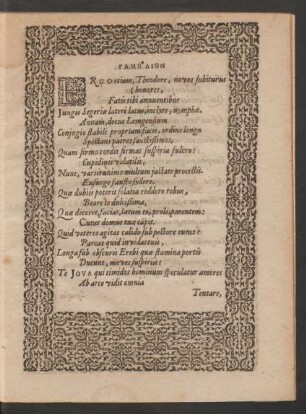 ΓΑΜΗΛΙΟΝ
ERGO etiam, Theodore, novos subiturus
honores,
Fatis tibi annuentibus
Jungis Segeriæ lateri latus, inclyte, nymphæ,
Annam, decus Lamgensium
Conjugio stabili propriam facis, ordine longo
Spectant patres faustissimos,
Quam firmo tandi firmas suspiria fulcro:
Cupidinis volatilis,
Nunc, variis animo multum jactate procellis,
Exsurge fausto sidere.
Quæ dubiis poterit solatia reddere rebus,
Beare te dulcissima,
Quæ decoret, faciat, latum te, prole, parentem:
Cujus domus tuæ caput.
Quid veteres agitas calido sub pectore curas?
Parcas quid invidas tui,
Longa sub obscuris Erebi quæ stamina portis
Ducunt, noves suspiriis?
Te JOVA qui timidos hominum speculatur amores
Ab arce vidit omnia
Tentare,